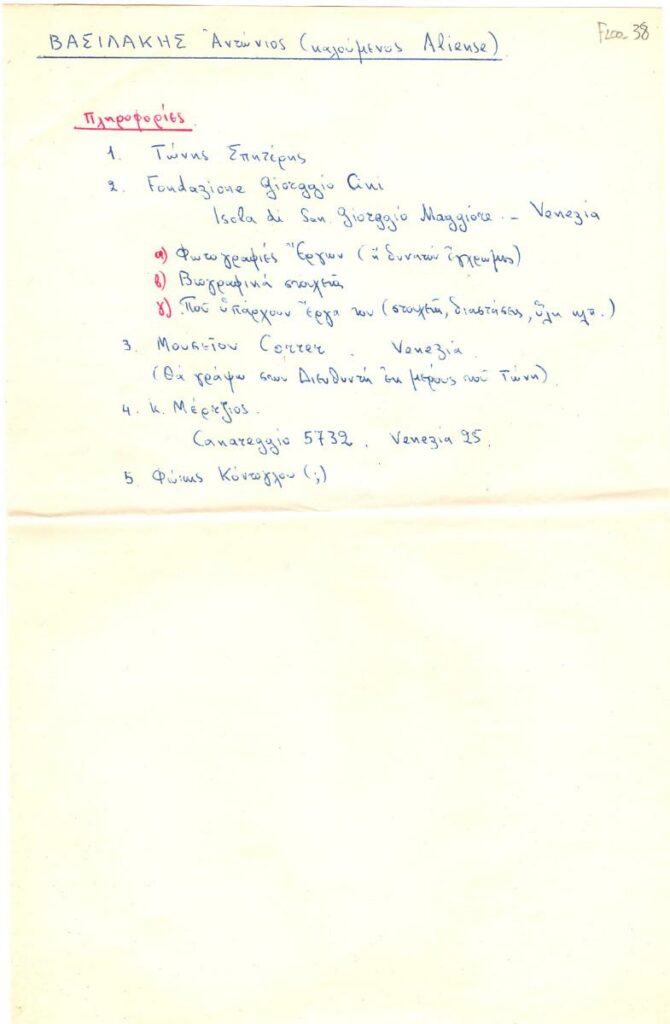 Floo. 38
ΒΑΣΙΛΑΚΗΣ Ἀντώνιος (καλούμενος Aliense)
Πληροφορίες
1. Τώνης Σπητέρης
2. Fondazione Giorggio Cini
Isola di San Giorggio Maggiore - Venezia
α) Φωτογραφίες Ἔργων (εἰ δυνατόν ἔγχρωμες)
β) Βιογραφικά στοιχεῖα
γ) Ποῦ ὑπάρχουν ἔργα του (στοιχεῖα, διαστάσεις, ὕλη κλπ.)
3. Μουσεῖον Correr. Venezia.
(Θά γράψω στον Διευθυντή ἐκ μέρους τοῦ Τώνη)
4. κ. Μέρτζιος.
Canareggio 5732. Venezia 25.
5 Φώτης Κόντογλου (;)